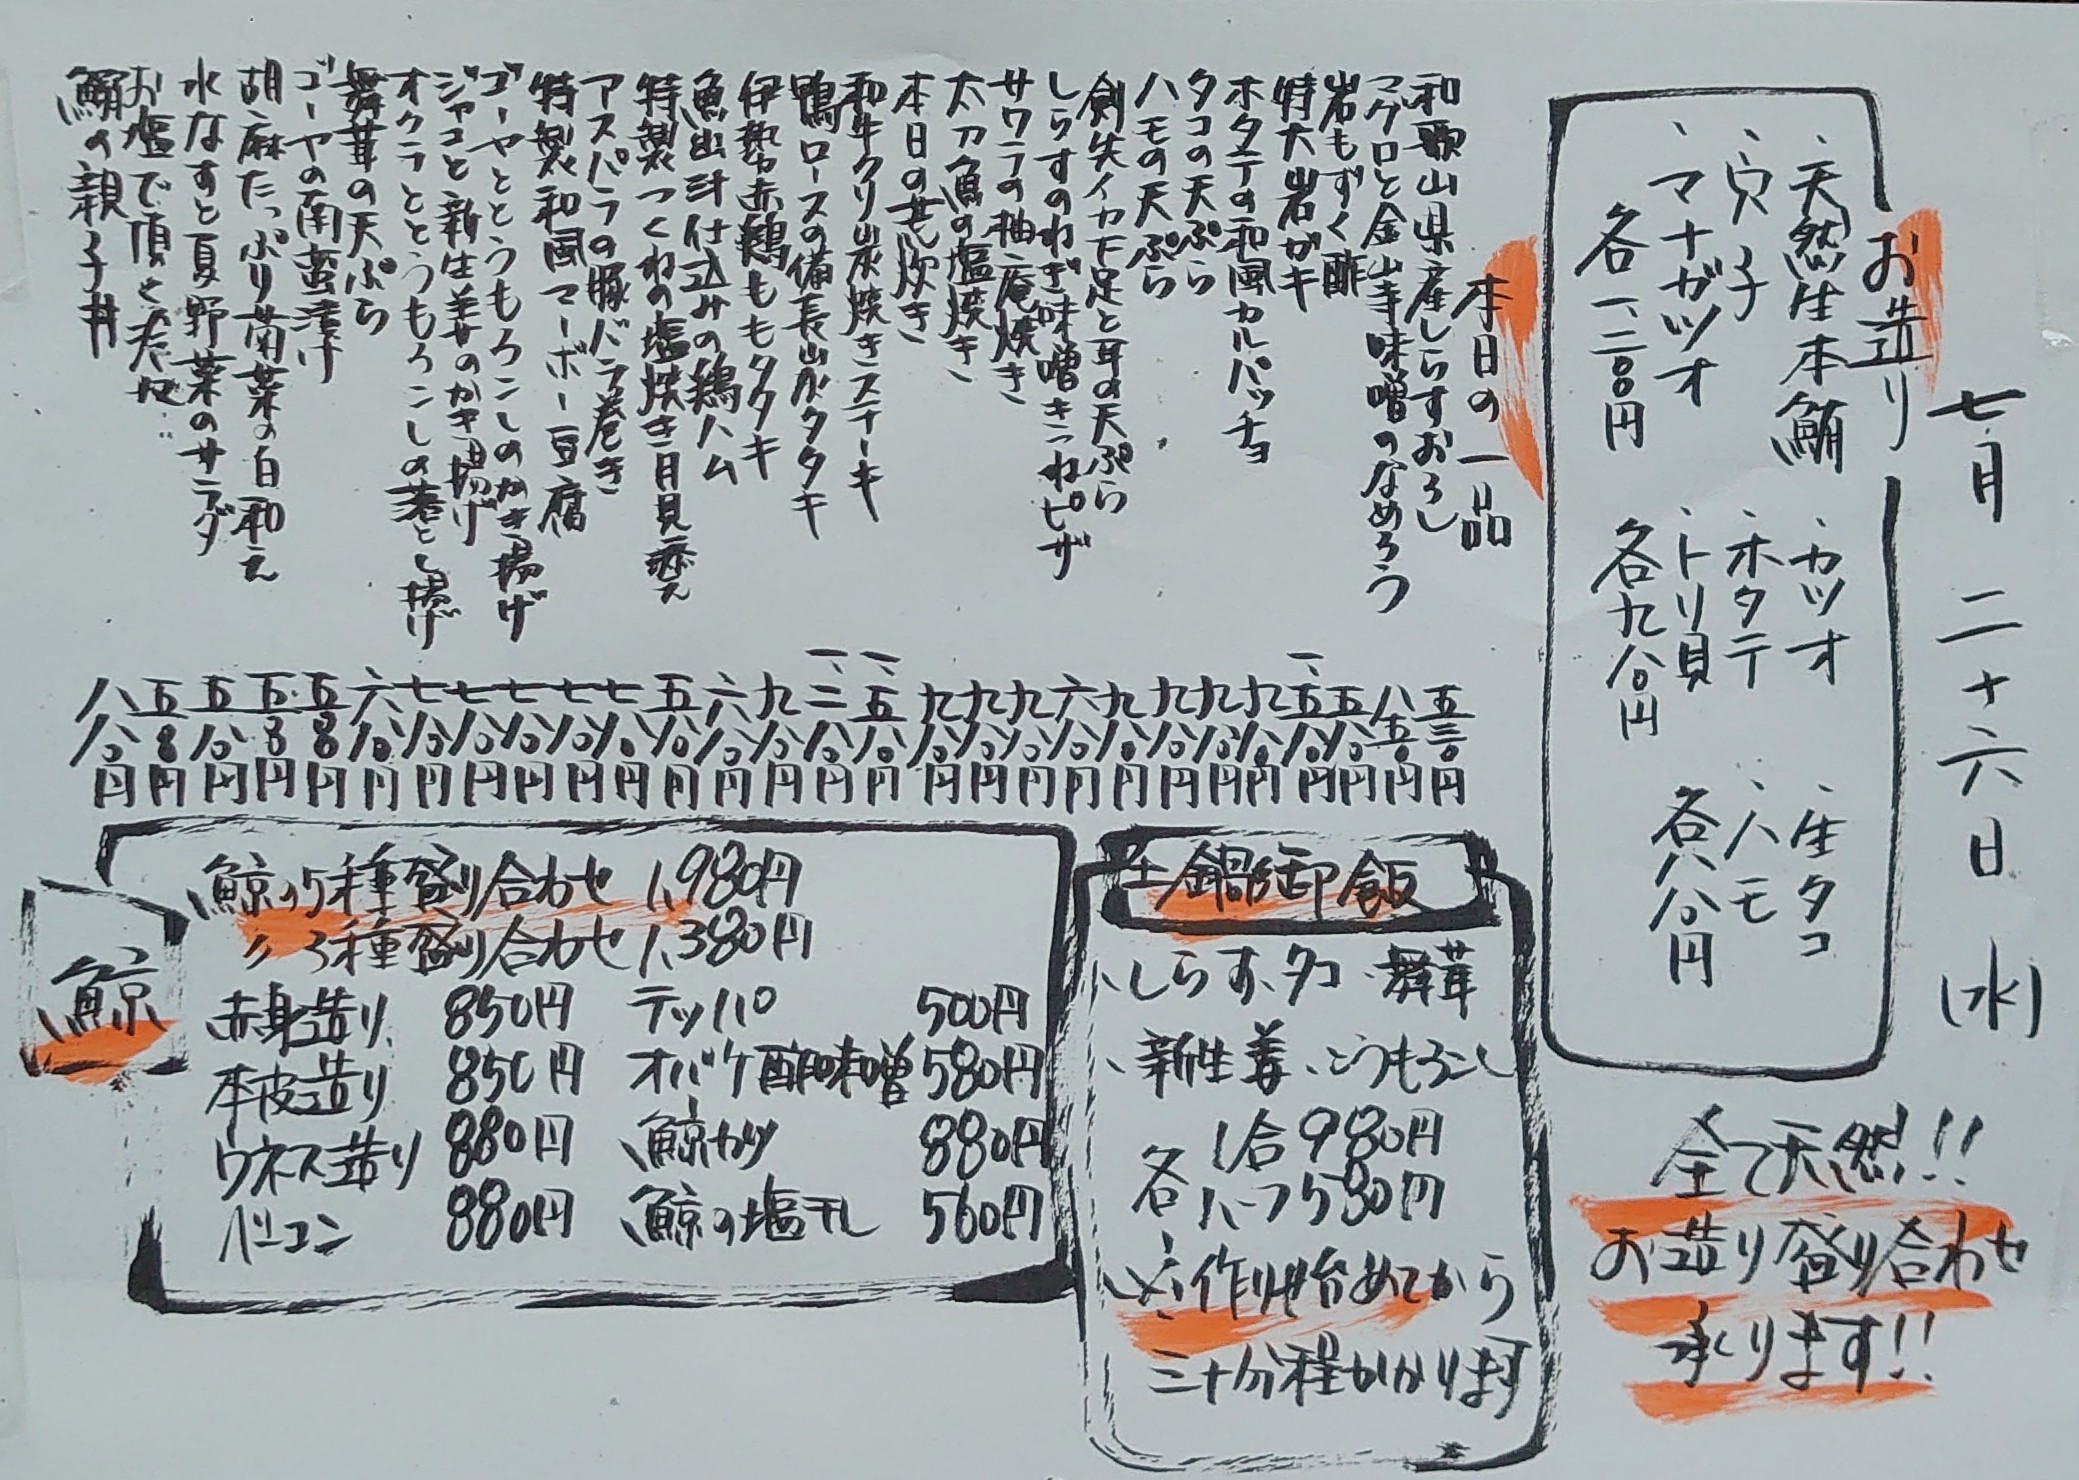 七月二十六日(水)
お造り
、天然生本鮪
、穴子
、マナガツオ
各一二〇〇円
、カツオ
、ホタテ
、トリ貝
各九八〇円
、生タコ
、ハモ
各八八〇円
全て天然!!
お造り盛り合わせ
承ります!!
本日の一品
和歌山県産しらすおろし 五三〇円
マグロと金山寺味噌のなめろう 八五〇円
岩もずく酢 五八〇円
特大岩ガキ 一、五八〇円
ホタテの和風カルパッチョ 九八〇円
タコの天ぷら 九八〇円
ハモの天ぷら 九八〇円
剣先イカ下足と耳の天ぷら 九八〇円
しらすのねぎ味噌きつねピザ 六八〇円
サワラの柚庵焼き 九八〇円
太刀魚の塩焼き 九八〇円
本日の荒炊き 九八〇円
和牛クリ炭焼きステーキ 一、五八〇円
鴨ロースの備長タタキ 一、二八〇円
伊勢赤鶏ももタタキ 九八〇円
魚出汁仕込みの鶏ハム 六八〇円
特製つくねの塩焼き月見添え 五八〇円
アスパラの豚バラ巻き 七八〇円
特製和風マーボー豆腐 七八〇円
ゴーヤととうもろこしのかき揚げ 七八〇円
ジャコと新生姜のかき揚げ 七八〇円
オクラととうもろこしの落とし揚げ 七八〇円
舞茸の天ぷら 六八〇円
ゴーヤの南蛮漬け
胡麻たっぷり菊菜の白和え
水なすと夏野菜のサラダ 五八〇円
お塩で頂く
鮪の親子丼 八八〇円
土鍋御飯
、しらす、タコ、舞茸
、新生姜、とうもろこし
各 1合 980円
ハーフ 580円
※作り始めてから
三十分程かかります
鯨
鯨の5種盛り合わせ 1,980円
〃 3種盛り合わせ 1,380円
赤身造り 850円 テッパ 500円
本皮造り 850円 オバケ酢味噌 580円
ウネス造り 880円 鯨カツ 880円
ベーコン 880円 鯨の塩干し 560円